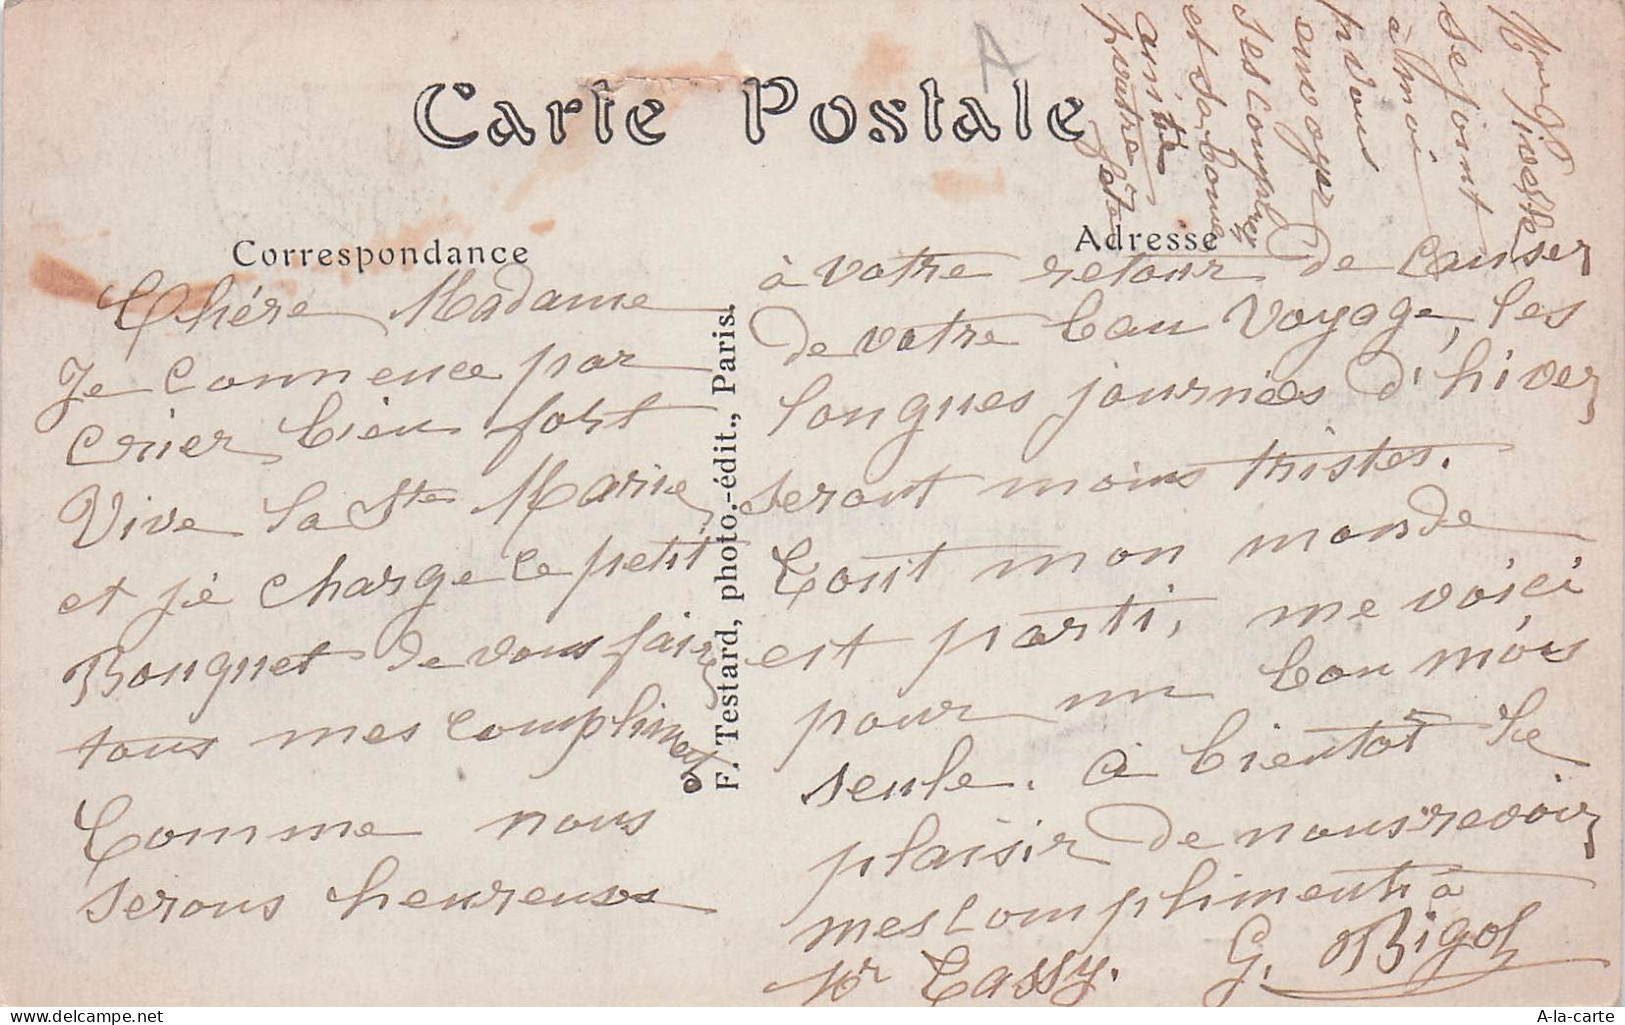 Carte Postale
A
Correspondance
Adresse
F. Testard, photo.-édit., Paris.
Chére Madame
Je commence par
crier bien fort
Vive la Ste Marie
et je charge ce petit
Bouquet de vous faire
tous mes compliments
Comme nous
serons heureuses
à votre retour de causer
de votre beau voyage, les
longues journées d'hiver
seront moins tristes.
Tout mon monde
est parti, me voici
pour un bon mois
seule. à bientôt le
plaisir de nous revoir
mes compliments à
Mr Cassy. G. Bigot
Mme
se joint
à moi
p vous
envoyer
ses complimts
et sa bonne
amitié
pour votre fête
A-la-carte